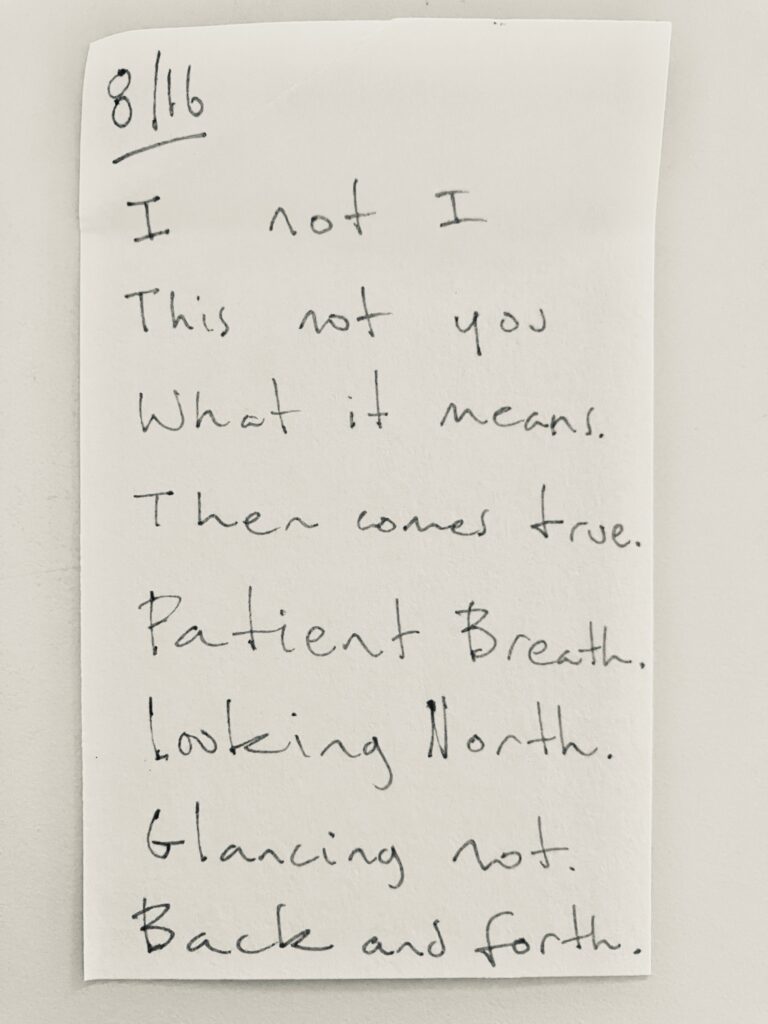 8/16
I not I
This not you
What it means.
Then comes true.
Patient Breath.
Looking North.
Glancing not.
Back and forth.